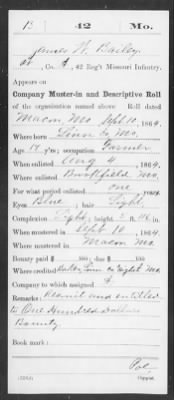 B 42 Mo.
James W. Bailey
Co. A, 42 Reg't Missouri Infantry.
Appears on
Company Muster-in and Descriptive Roll
of the organization named above. Roll dated
Macon, Mo Sept 10, 1864.
Where born Linn Co, Mo.
Age 19 y'rs; occupation Farmer
When enlisted Aug 4, 1864.
Where enlisted Brookfield Mo.
For what period enlisted one years.
Eyes Blue; hair Light.
Complexion Light; height 5 ft. in.
When mustered in Sept 10, 1864.
Where mustered in Macon Mo.
Bounty paid $ 100; due $ 100
Where credited Linn Co Mo.
Company to which assigned A
Remarks: Recruit and entitled
to One Hundred dollars
Bounty
Book mark:
Copyist.